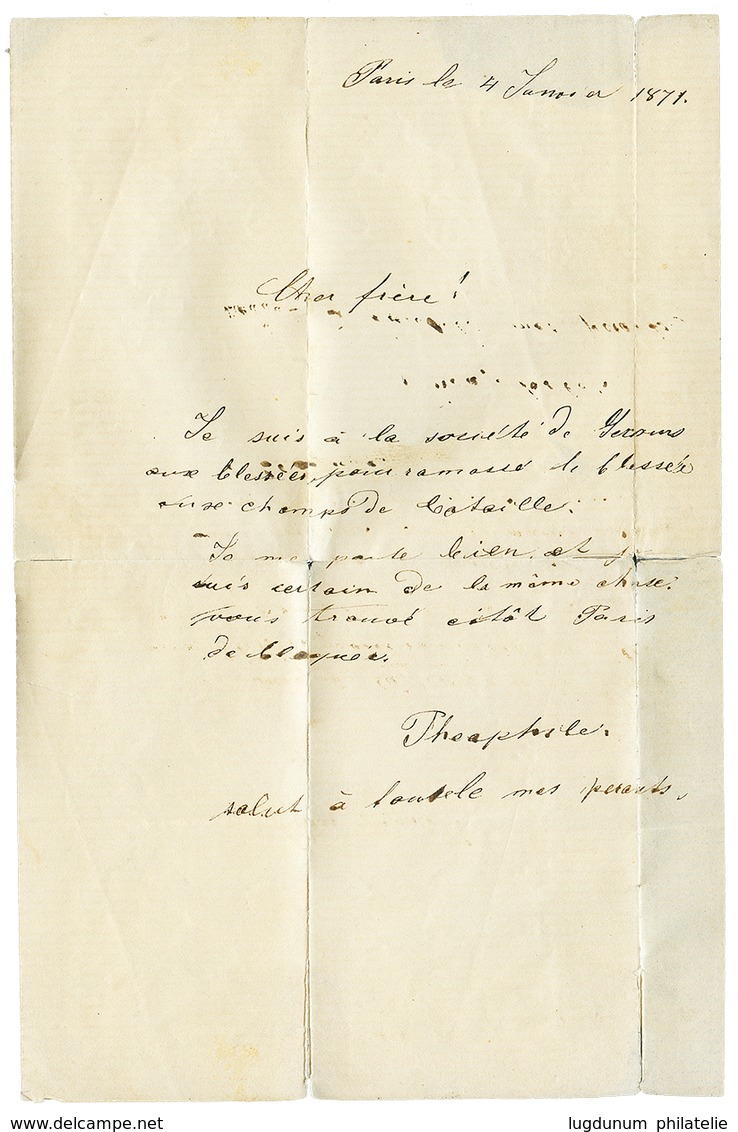 Paris le 4 Janvier 1871.
Cher frère!
Je suis à la société de Secours
aux blessées, pour ramassé le blessée
au champs de bataille.
Je me porte bien, et je
suis certain de la même chose.
vous trouvé sitôt Paris
de bloquer.
Theophile.
salut à toutele mes perents.
lugdunum philatelie
www.delcampe.net